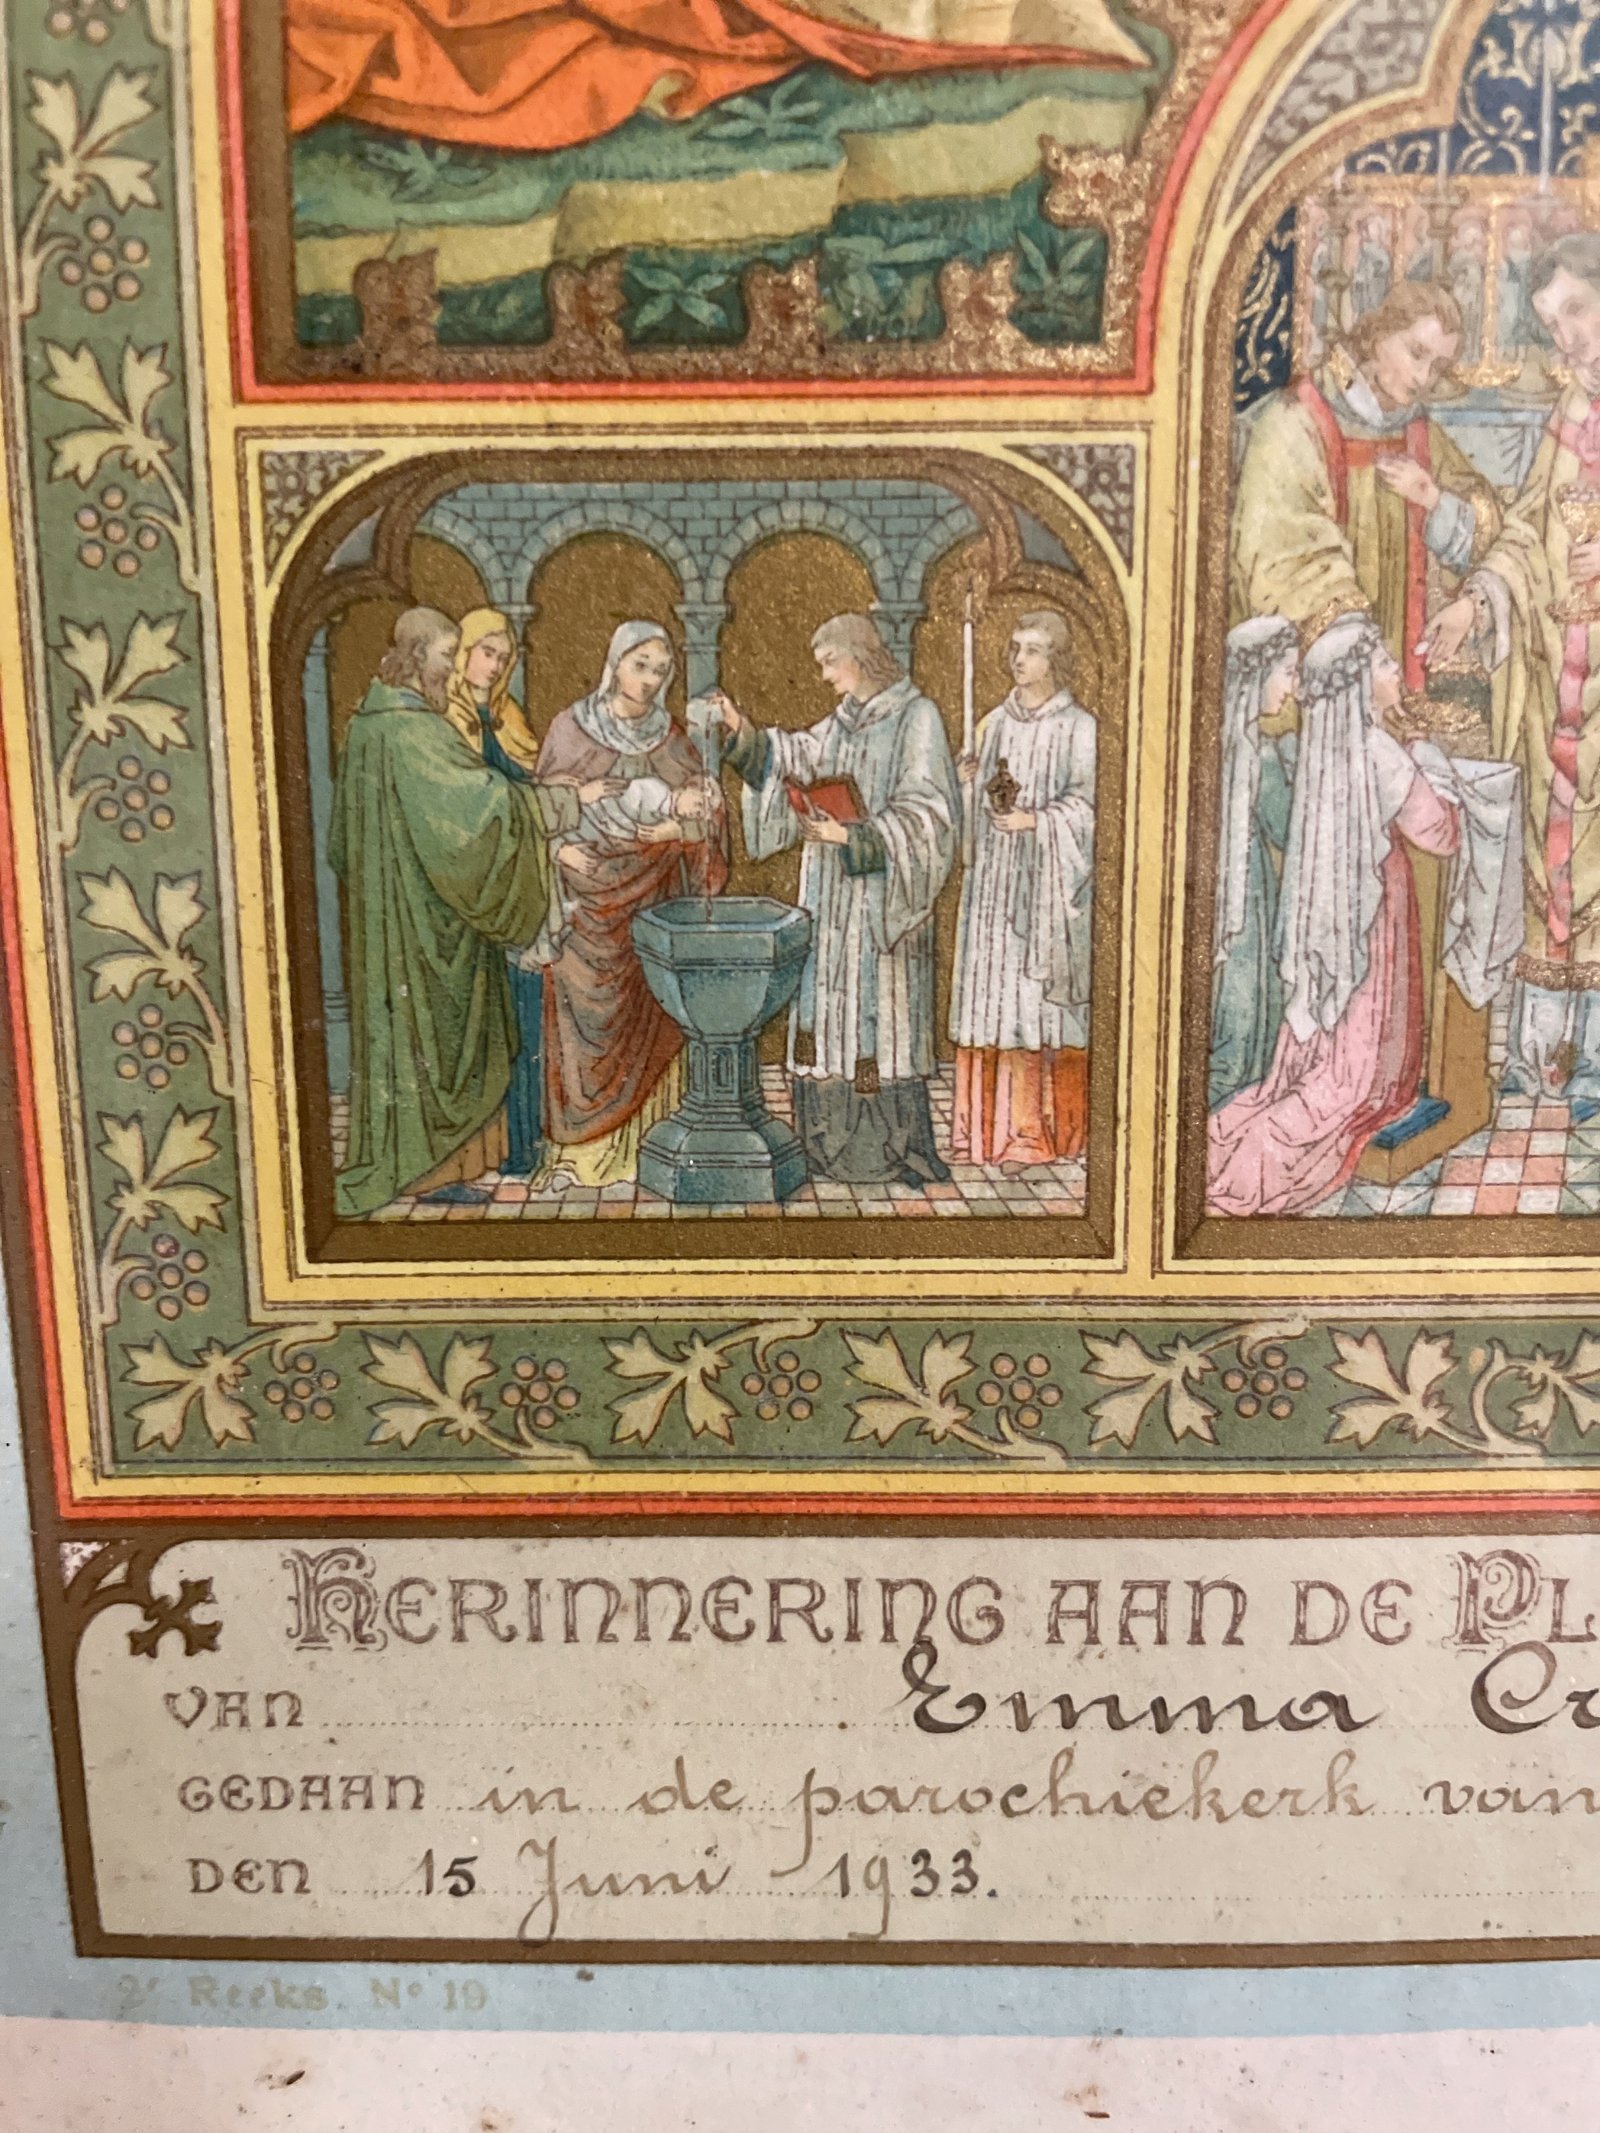 HERINNERING AAN DE PL
VAN Emma Cr
GEDAAN in de parochiekerk van
DEN 15 Juni 1933.
2e Reeks. No 19